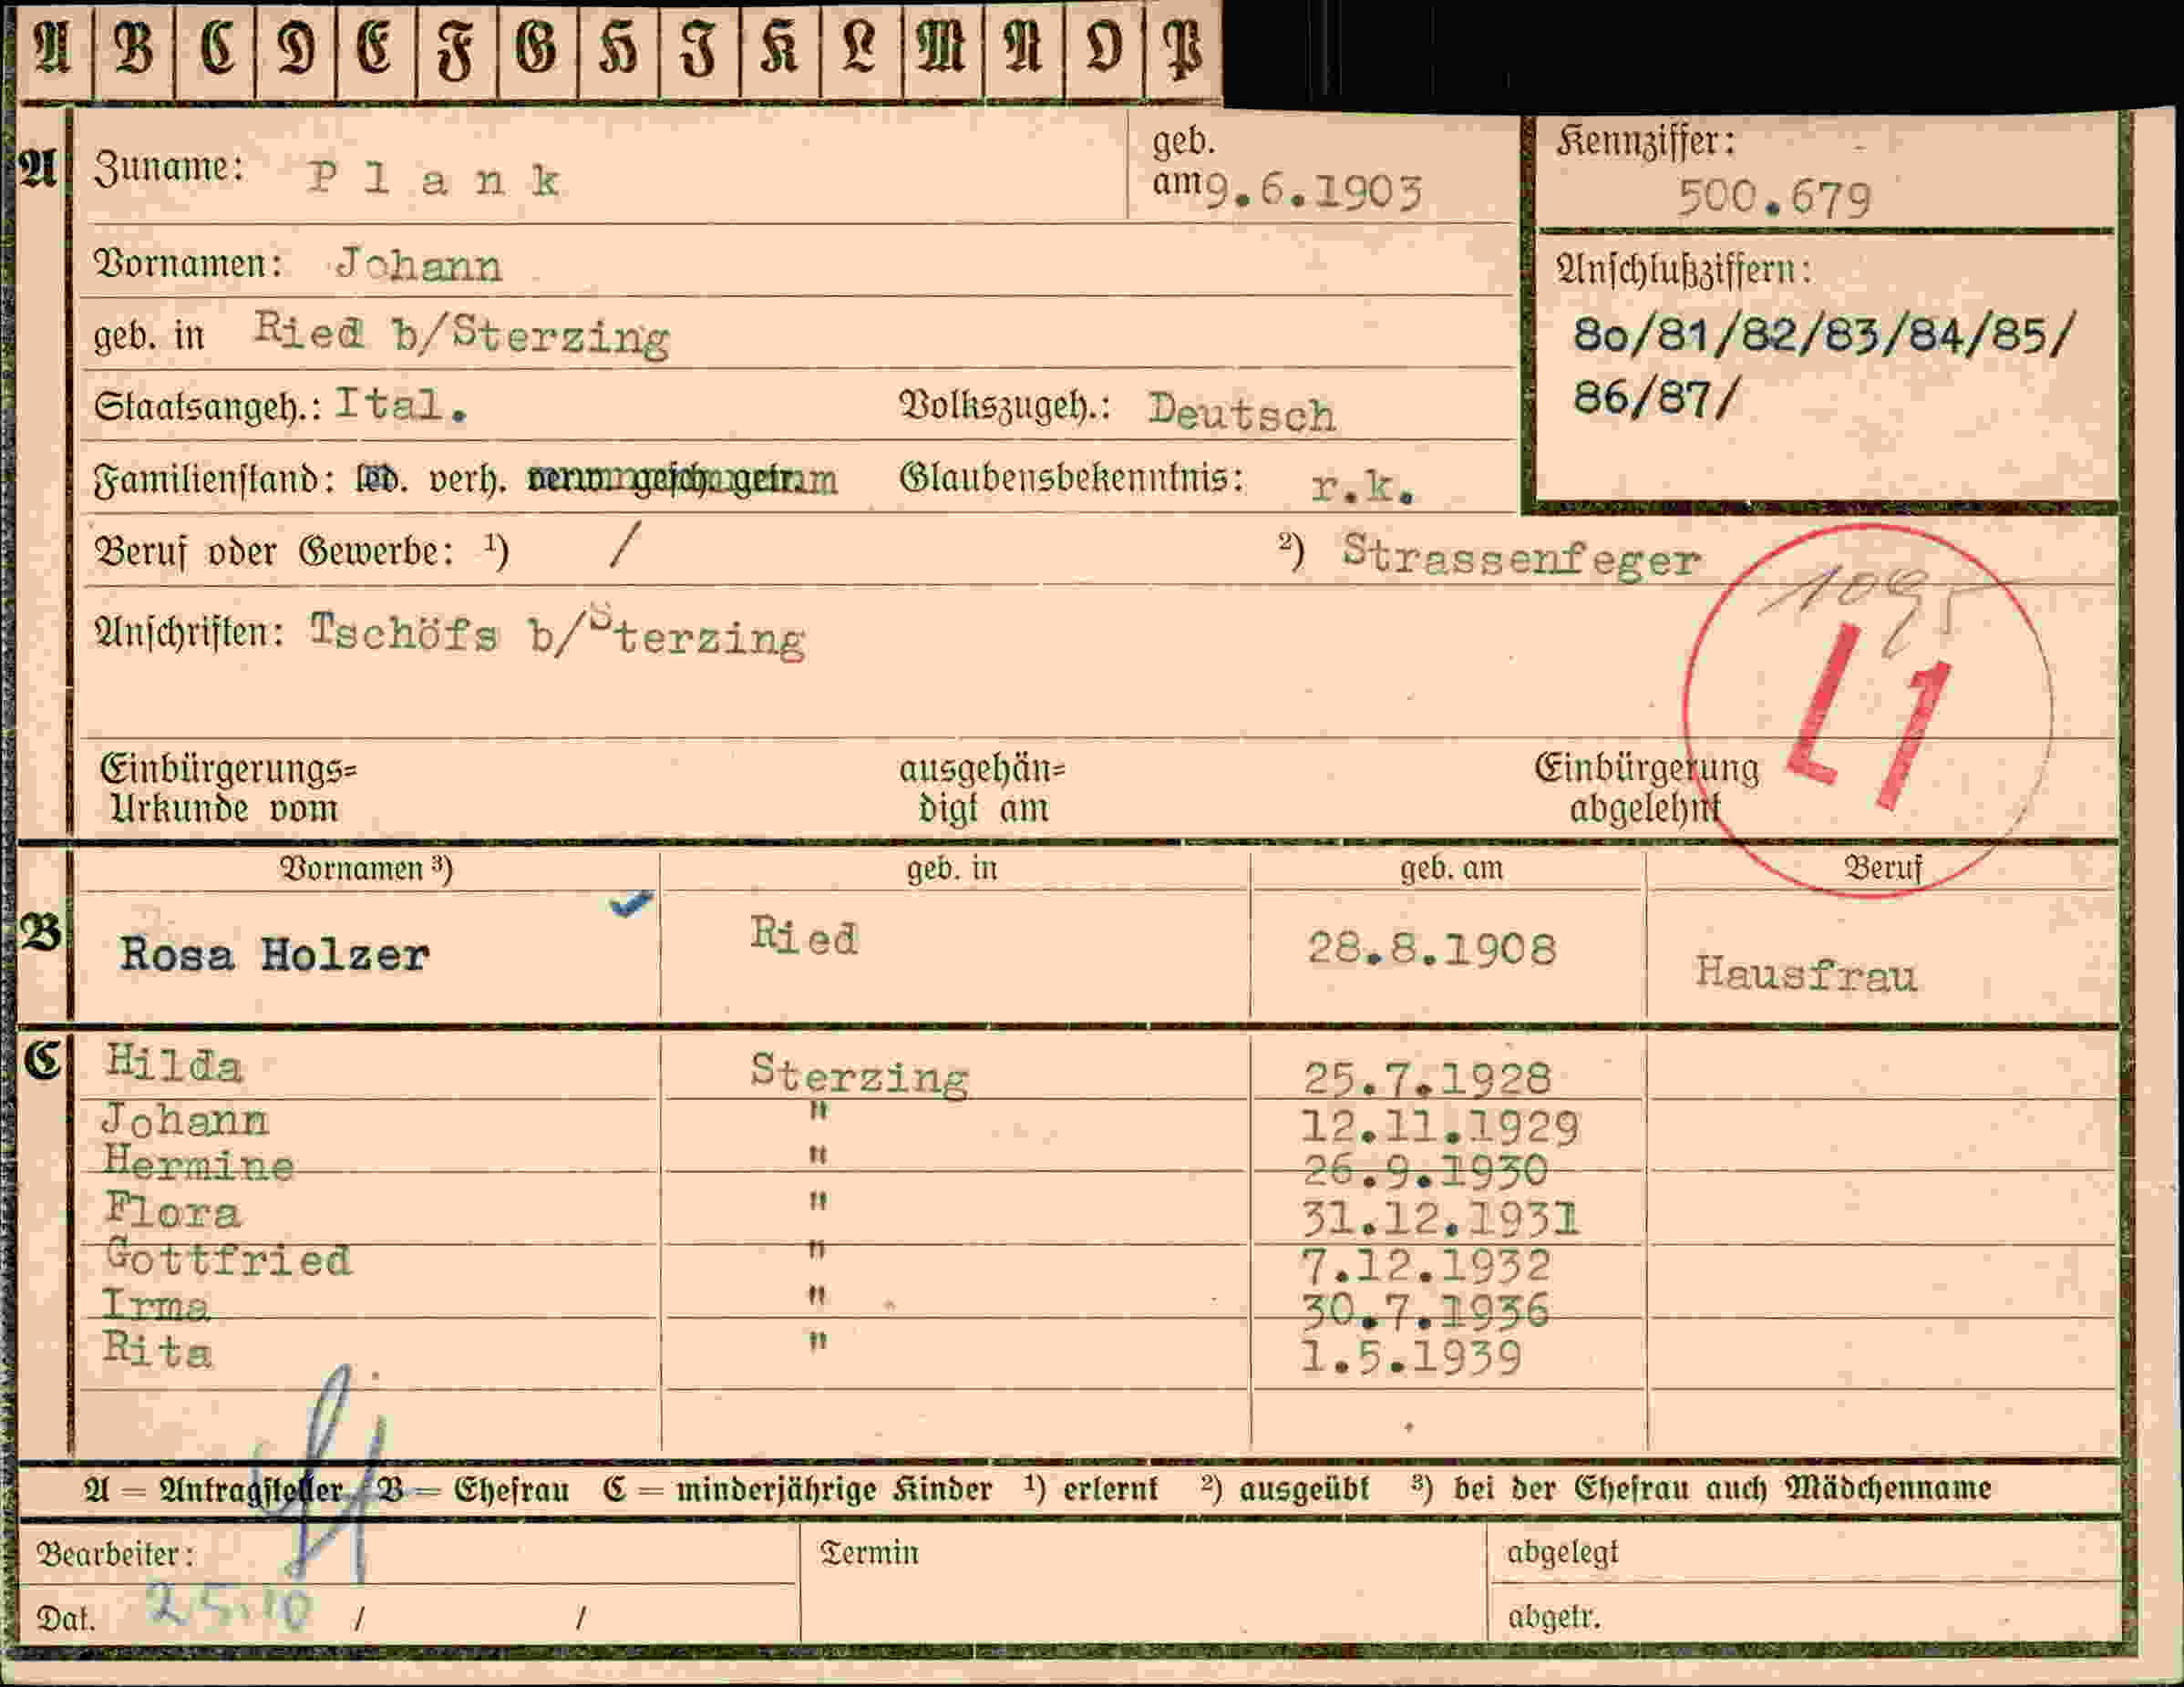 A B C D E F G H I K L M N O P
A Zuname: Plank geb. am 9.6.1903 Kennziffer: 500.679
Vornamen: Johann
Anschlußziffern:
geb. in Ried b/Sterzing 80/81/82/83/84/85/
Staatsangeh.: Ital. Volkszugeh.: Deutsch 86/87/
Familienstand: led. verh. Glaubensbekenntnis: r.k.
Beruf oder Gewerbe: ¹) / ²) Strassenfeger
Anschriften: Tschöfs b/Sterzing
L1
Einbürgerungs= ausgehän= Einbürgerung
Urkunde vom digt am abgelehnt
Vornamen ³) geb. in geb. am Beruf
B Rosa Holzer Ried 28.8.1908 Hausfrau
C Hilda Sterzing 25.7.1928
Johann " 12.11.1929
Hermine " 26.9.1930
Flora " 31.12.1931
Gottfried " 7.12.1932
Irma " 30.7.1936
Rita " 1.5.1939
A = Antragsteller B = Ehefrau C = minderjährige Kinder ¹) erlernt ²) ausgeübt ³) bei der Ehefrau auch Mädchenname
Bearbeiter: Termin abgelegt
Dat. 25.10 / / abgetr.